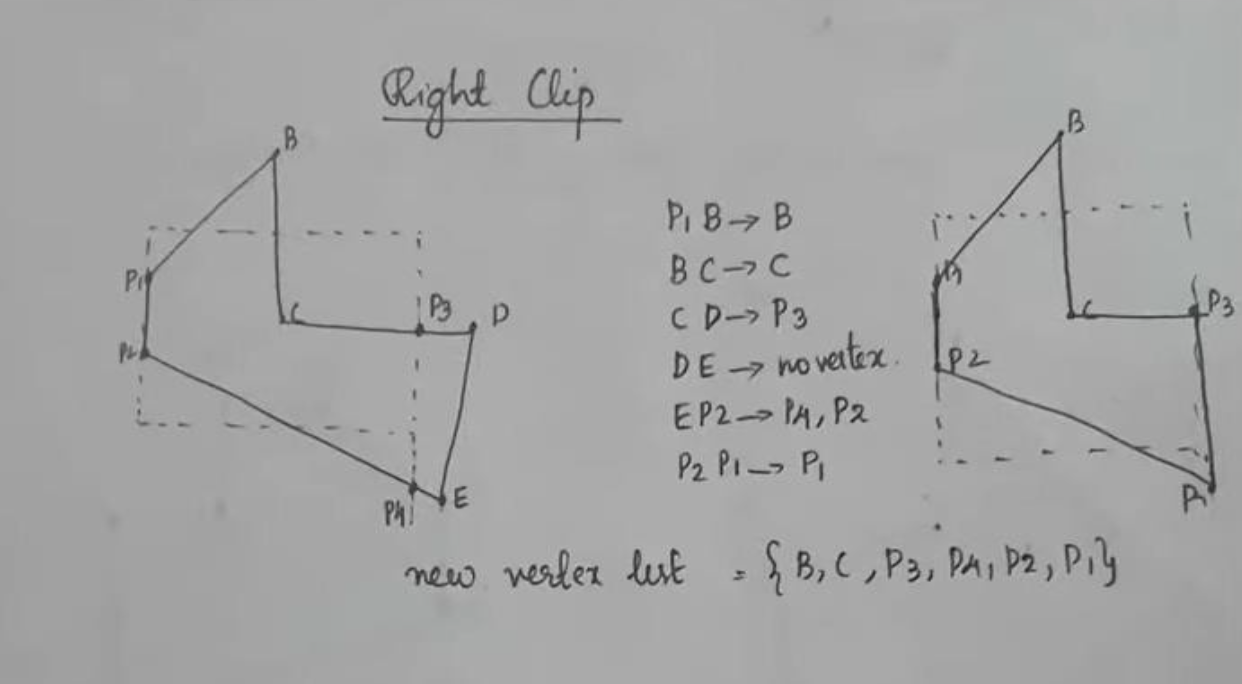 Right Clip
B
P1
P2
C
P3
D
P4
E
P1 B → B
B C → C
C D → P3
D E → no vertex.
E P2 → P4, P2
P2 P1 → P1
B
P1
P2
C
P3
new vertex list = { B, C, P3, P4, P2, P1}